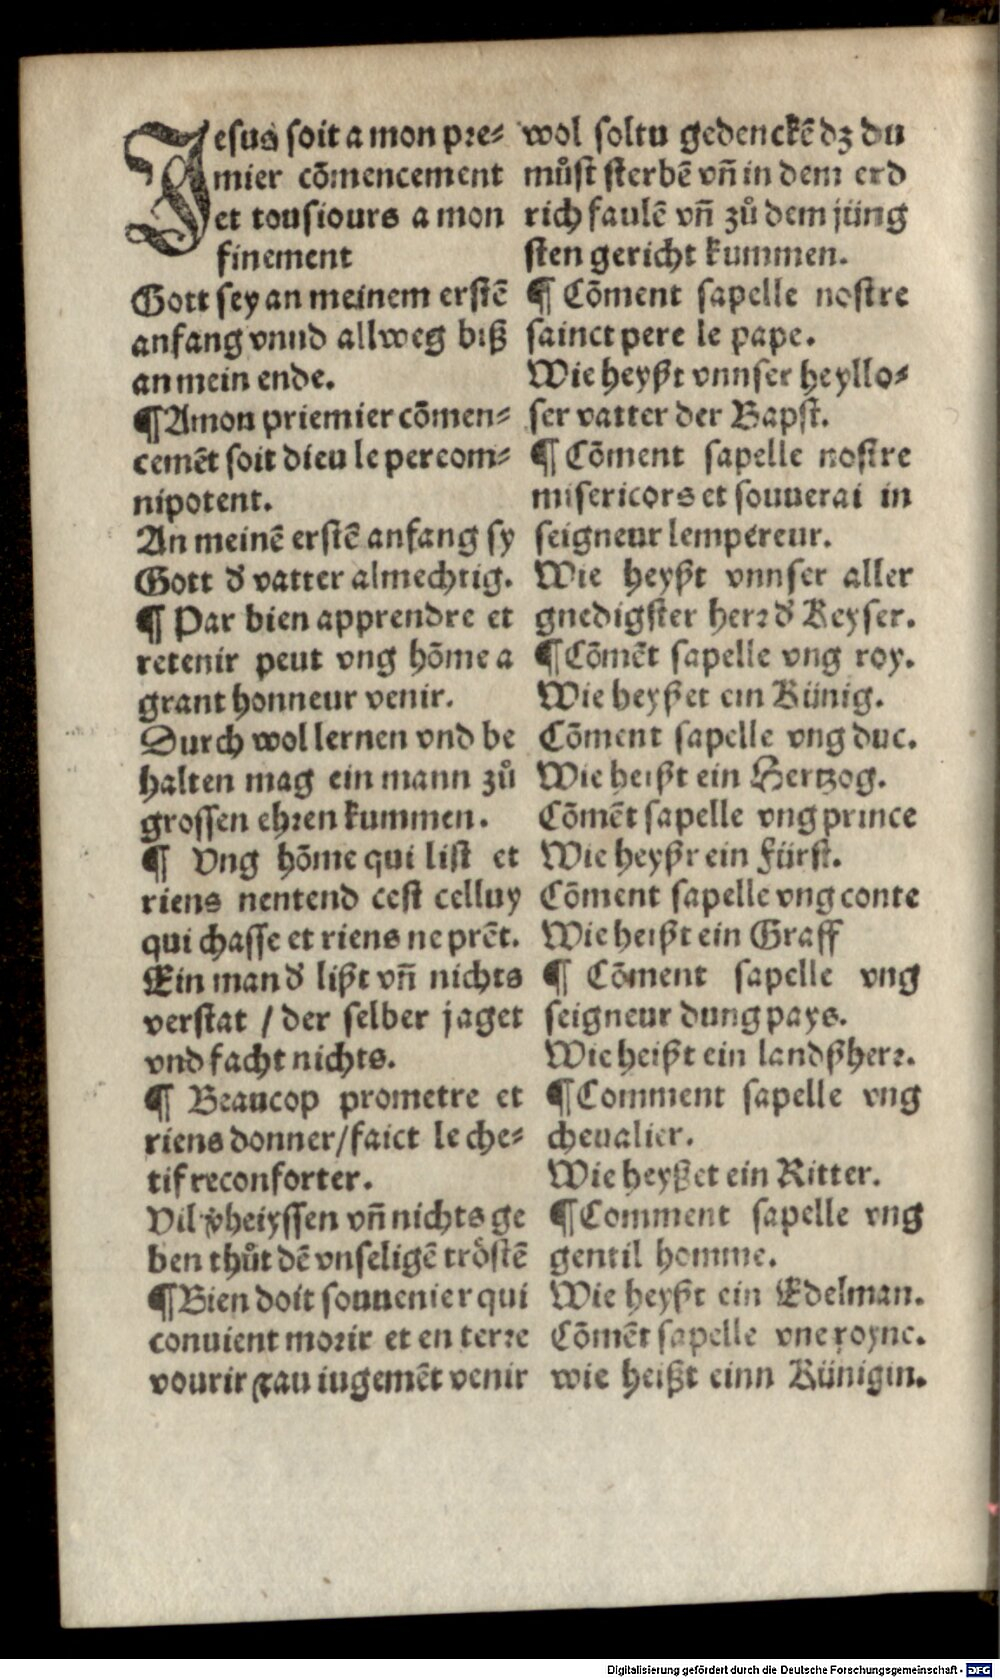 Jesus soit a mon pre⸗
mier cōmencement
et tousiours a mon
finement
Gott sey an meinem erstē
anfang vnnd allweg biß
an mein ende.
¶ A mon priemier cōmen⸗
cemēt soit dieu le pere om⸗
nipotent.
An meinē erstē anfang sy
Gott d̕ vatter almechtig.
¶ Par bien apprendre et
retenir peut vng hōme a
grant honneur venir.
Durch wol lernen vnd be
halten mag ein mann zů
grossen ehren kummen.
¶ Vng hōme qui list et
riens nentend cest celluy
qui chasse et riens ne prēt.
Ein man d̕ lißt vn̄ nichts
verstat / der selber jaget
vnd facht nichts.
¶ Beaucop prometre et
riens donner/faict le che⸗
tif reconforter.
Vil v̕heiyssen vn̄ nichts ge
ben thůt dē vnseligē tröstē
¶ Bien doit souuenier qui
conuient morir et en terre
pourir ⁊ au iugemēt venir
wol soltu gedenckē dz du
můst sterbē vn̄ in dem erd
rich faulē vn̄ zů dem jüng
sten gericht kummen.
¶ Cōment sapelle nostre
sainct pere le pape.
Wie heyßt vnnser heyllo⸗
ser vatter der Bapst.
¶ Cōment sapelle nostre
misericors et souuerai in
seigneur lempereur.
Wie heyßt vnnser aller
gnedigster herr d̕ Keyser.
¶ Cōmēt sapelle vng roy.
Wie heyßet ein Künig.
Cōment sapelle vng duc.
Wie heißt ein Hertzog.
Cōmēt sapelle vng prince
Wie heyßr ein Fürst.
Cōment sapelle vng conte
Wie heißt ein Graff
¶ Cōment sapelle vng
seigneur dung pays.
Wie heißt ein landßherr.
¶ Comment sapelle vng
cheualier.
Wie heyßet ein Ritter.
¶ Comment sapelle vng
gentil homme.
Wie heyßt ein Edelman.
Cōmēt sapelle vne royne.
wie heißt einn Künigin.
Digitalisierung gefördert durch die Deutsche Forschungsgemeinschaft - DFG